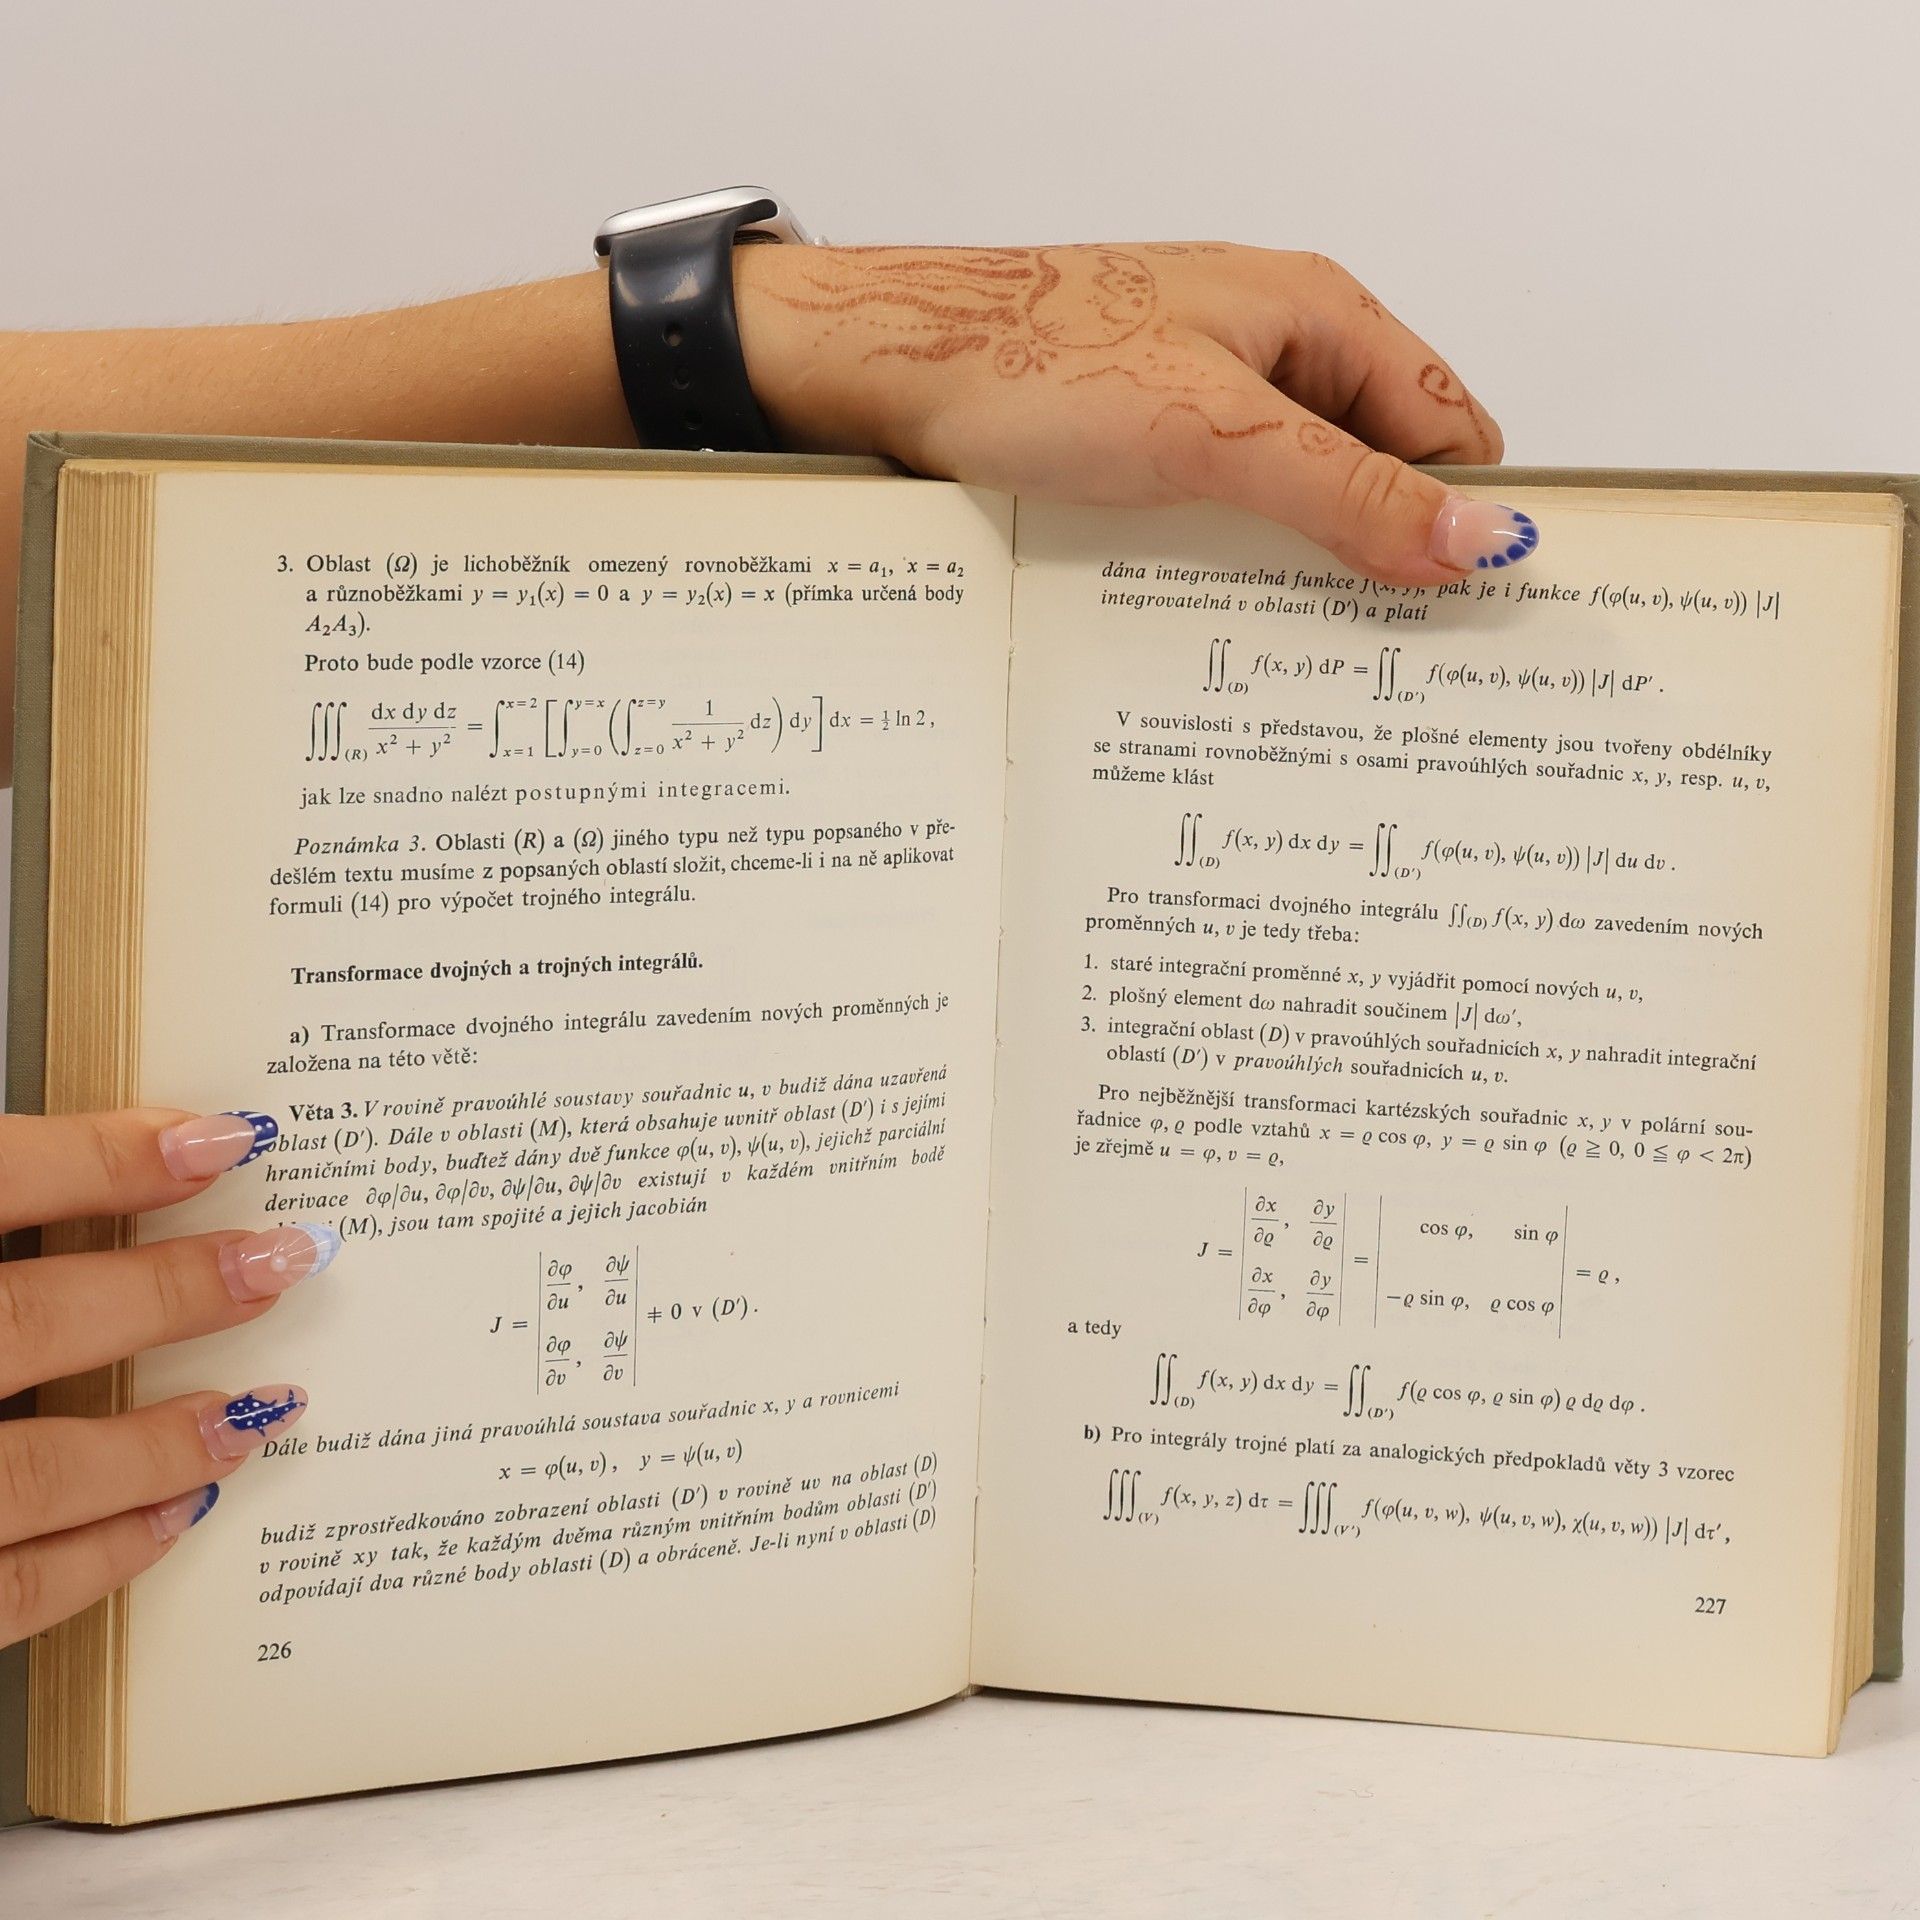 3. Oblast (Ω) je lichoběžník omezený rovnoběžkami x = a₁, x = a₂
a různoběžkami y = y₁(x) = 0 a y = y₂(x) = x (přímka určená body
A₂A₃).
Proto bude podle vzorce (14)
∭(R) dx dy dz / (x² + y²) = ∫_{x=1}^{x=2} [∫_{y=0}^{y=x} (∫_{z=0}^{z=y} 1/(x² + y²) dz) dy] dx = ½ ln 2,
jak lze snadno nalézt postupnými integracemi.
Poznámka 3. Oblasti (R) a (Ω) jiného typu než typu popsaného v pře-
dešlém textu musíme z popsaných oblastí složit, chceme-li i na ně aplikovat
formuli (14) pro výpočet trojného integrálu.
Transformace dvojných a trojných integrálů.
a) Transformace dvojného integrálu zavedením nových proměnných je
založena na této větě:
Věta 3. V rovině pravoúhlé soustavy souřadnic u, v budiž dána uzavřená
oblast (D′). Dále v oblasti (M), která obsahuje uvnitř oblast (D′) i s jejími
hraničními body, buďtež dány dvě funkce φ(u, v), ψ(u, v), jejichž parciální
derivace ∂φ/∂u, ∂φ/∂v, ∂ψ/∂u, ∂ψ/∂v existují v každém vnitřním bodě
(M), jsou tam spojité a jejich jacobián
J = | ∂φ/∂u, ∂ψ/∂u ; ∂φ/∂v, ∂ψ/∂v | ≠ 0 v (D′).
Dále budiž dána jiná pravoúhlá soustava souřadnic x, y a rovnicemi
x = φ(u, v), y = ψ(u, v)
budiž zprostředkováno zobrazení oblasti (D′) v rovině uv na oblast (D)
v rovině xy tak, že každým dvěma různým vnitřním bodům oblasti (D′)
odpovídají dva různé body oblasti (D) a obráceně. Je-li nyní v oblasti (D)
226
dána integrovatelná funkce f(x, y), pak je i funkce f(φ(u, v), ψ(u, v)) |J|
integrovatelná v oblasti (D′) a platí
∬(D) f(x, y) dP = ∬(D′) f(φ(u, v), ψ(u, v)) |J| dP′.
V souvislosti s představou, že plošné elementy jsou tvořeny obdélníky
se stranami rovnoběžnými s osami pravoúhlých souřadnic x, y, resp. u, v,
můžeme klást
∬(D) f(x, y) dx dy = ∬(D′) f(φ(u, v), ψ(u, v)) |J| du dv.
Pro transformaci dvojného integrálu ∬(D) f(x, y) dω zavedením nových
proměnných u, v je tedy třeba:
1. staré integrační proměnné x, y vyjádřit pomocí nových u, v,
2. plošný element dω nahradit součinem |J| dω′,
3. integrační oblast (D) v pravoúhlých souřadnicích x, y nahradit integrační
oblastí (D′) v pravoúhlých souřadnicích u, v.
Pro nejběžnější transformaci kartézských souřadnic x, y v polární sou-
řadnice φ, ϱ podle vztahů x = ϱ cos φ, y = ϱ sin φ (ϱ ≧ 0, 0 ≦ φ < 2π)
je zřejmě u = φ, v = ϱ,
J = | ∂x/∂ϱ, ∂y/∂ϱ ; ∂x/∂φ, ∂y/∂φ | = | cos φ, sin φ ; −ϱ sin φ, ϱ cos φ | = ϱ,
a tedy
∬(D) f(x, y) dx dy = ∬(D′) f(ϱ cos φ, ϱ sin φ) ϱ dϱ dφ.
b) Pro integrály trojné platí za analogických předpokladů věty 3 vzorec
∭(V) f(x, y, z) dτ = ∭(V′) f(φ(u, v, w), ψ(u, v, w), χ(u, v, w)) |J| dτ′,
227